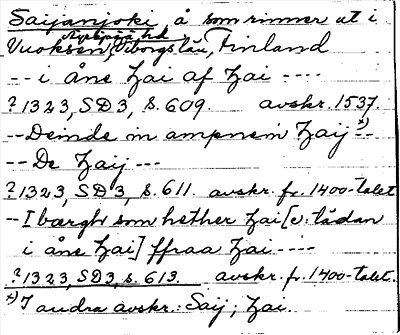 Saijanjoki, å som rinner ut i
Äyräpää hd
Vuoksen, Viborgs län, Finland
-- i åne Zai af Zai ----
?1323, SD3, s. 609. avskr. 1537.
-- Deinde in ampnem Zaij *) --
-- De Zaij ---
?1323, SD3, s. 611. avskr. fr. 1400-talet
-- I bærgh som hether Zai [o: lådan
i åne Zai] ffraa Zai ----
?1323, SD3, s. 613. avskr. fr. 1400-talet.
*) I andra avskr.: Saij; Zai.